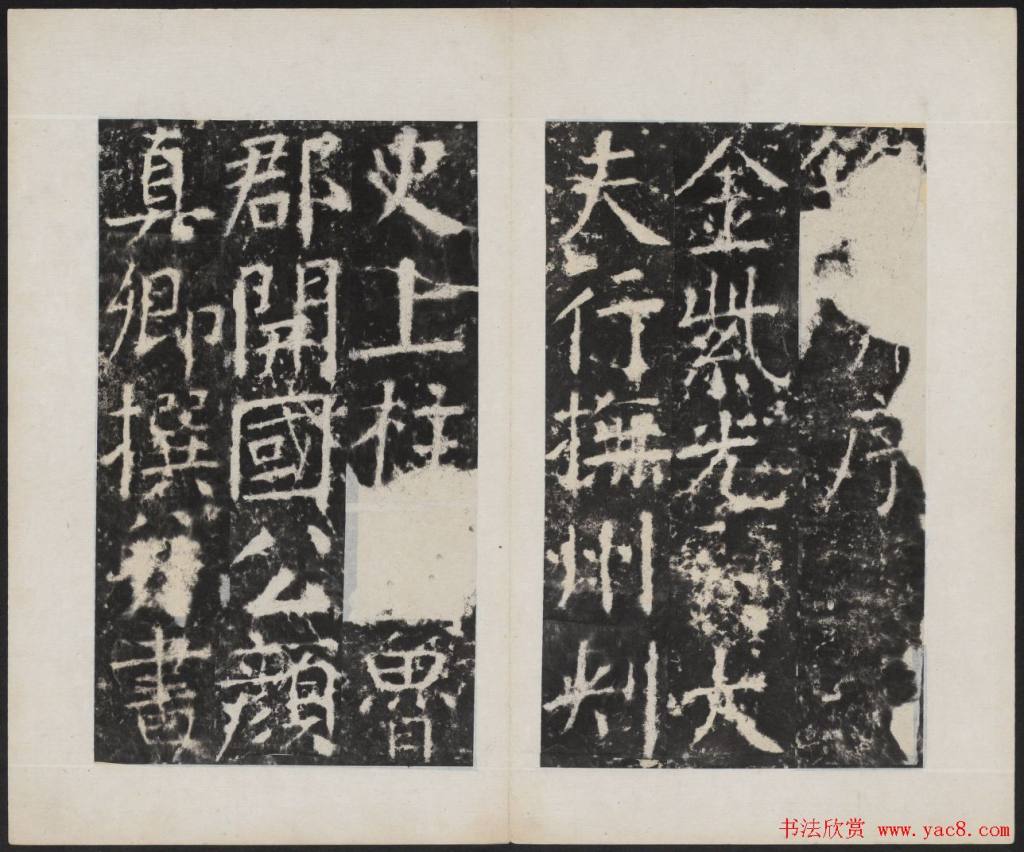 序
金紫光大
夫行撫州刾
史上柱魯
郡開國公顏
真卿撰并書
书法欣赏 www.yac8.com